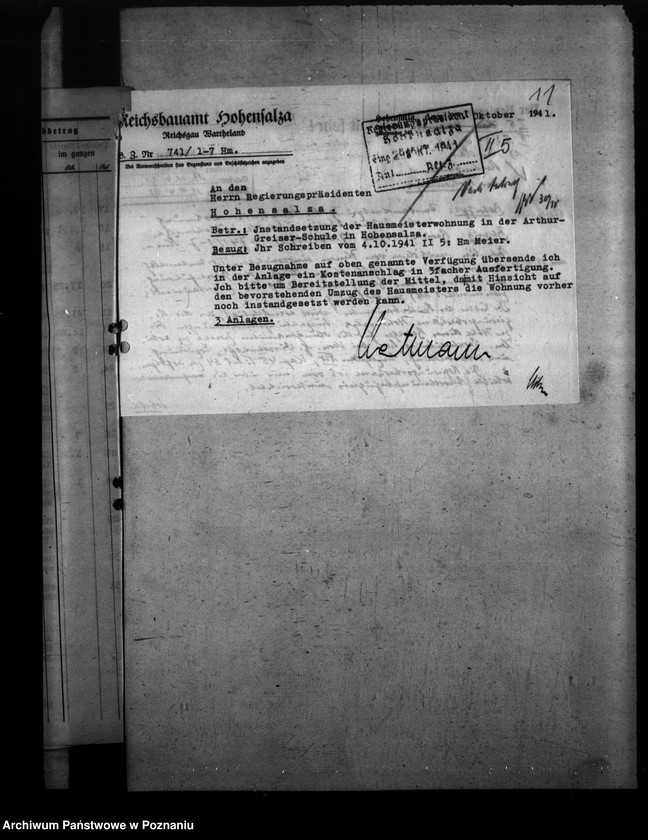 11
Reichsbauamt Hohensalza
Reichsgau Wartheland
Nr 741/ 1-7 Hm.
Bei Antwortschreiben stets Gegenstand und Geschäftszeichen anzugeben
Oktober 1941.
Regierungspräsident
Hohensalza
II 5
An den
Herrn Regierungspräsidenten
Hohensalza.
Betr.: Jnstandsetzung der Hausmeisterwohnung in der Arthur-
Greiser-Schule in Hohensalza.
Bezug: Jhr Schreiben vom 4.10.1941 II 5: Hm Meier.
Unter Bezugnahme auf oben genannte Verfügung übersende ich
in der Anlage ein Kostenanschlag in 3facher Ausfertigung.
Jch bitte um Bereitstellung der Mittel, damit Hinsicht auf
den bevorstehenden Umzug des Hausmeisters die Wohnung vorher
noch instandgesetzt werden kann.
3 Anlagen.
betrag
im ganzen
Archiwum Państwowe w Poznaniu